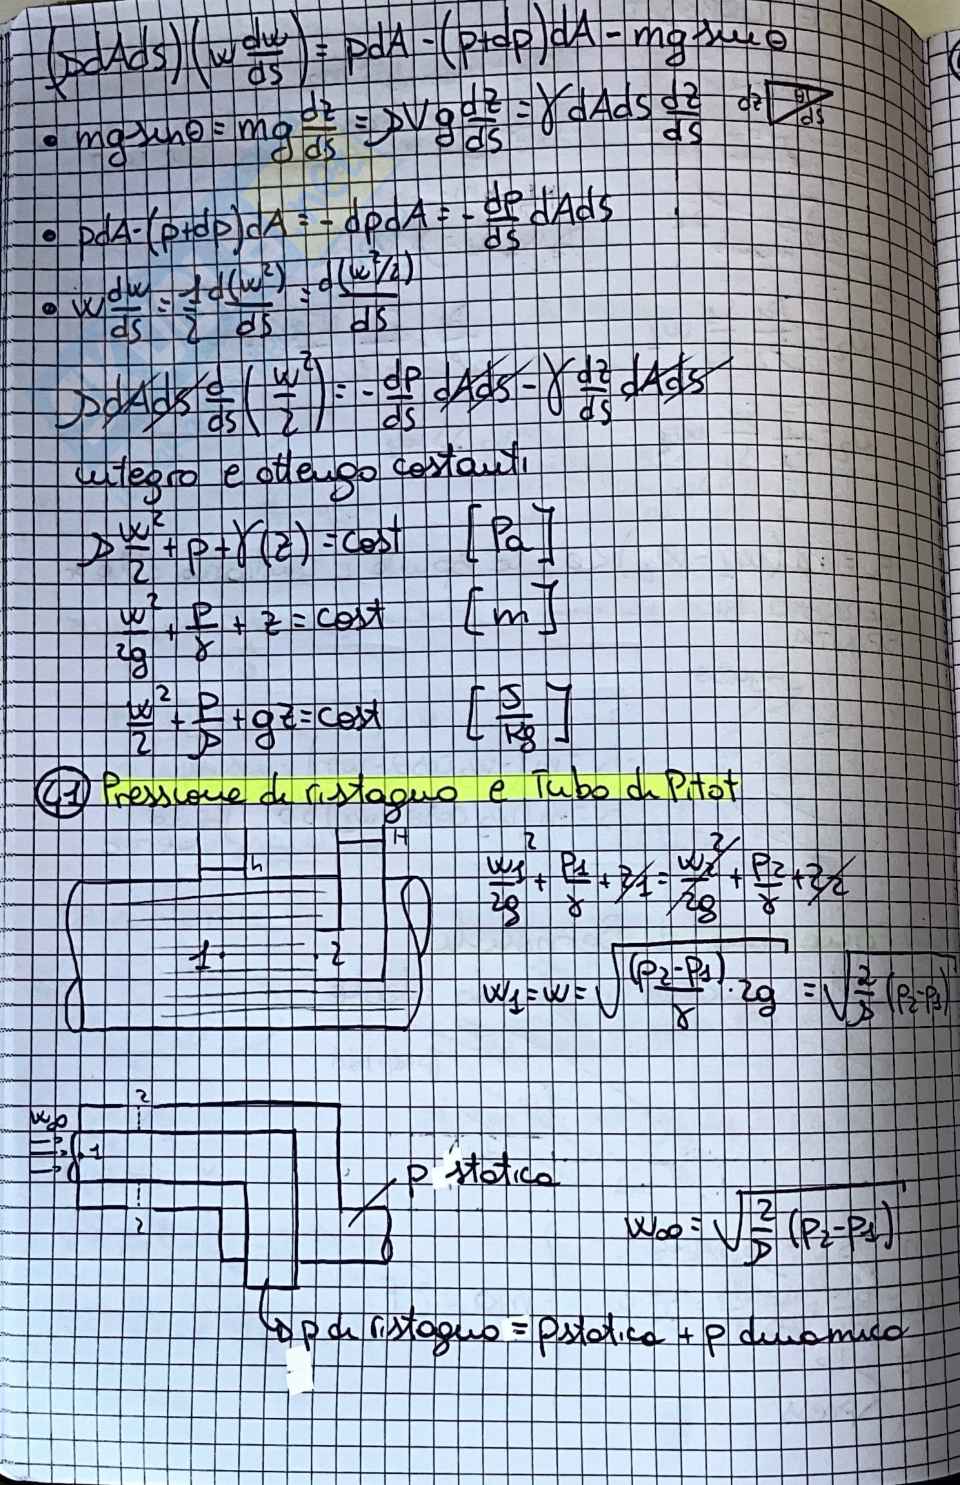 (ρdAds)(w dw/ds) = pdA - (p+dp)dA - mg sinθ
• mg sinθ = mg dz/ds = ρVg dz/ds = γdAds dz/ds dz θ ds
• pdA-(p+dp)dA = -dpdA = -dp/ds dAds
• w dw/ds = 1/2 d(w²)/ds = d(w²/2)/ds
ρdAds d/ds (w²/2) = -dp/ds dAds - γ dz/ds dAds
integro e ottengo costanti
ρ w²/2 + p + γ(z) = cost [Pa]
w²/2g + p/γ + z = cost [m]
w²/2 + p/ρ + gz = cost [J/kg]
4.1 Pressione di ristagno e Tubo di Pitot
h H
w1²/2g + p1/γ + z1 = w2²/2g + p2/γ + z2
1 2
w1 = w = √((p2-p1)/γ · 2g) = √(2/ρ (p2-p1))
2
w∞
1
p statica
2
w∞ = √(2/ρ (p2-p1))
p di ristagno = pstatica + p dinamica